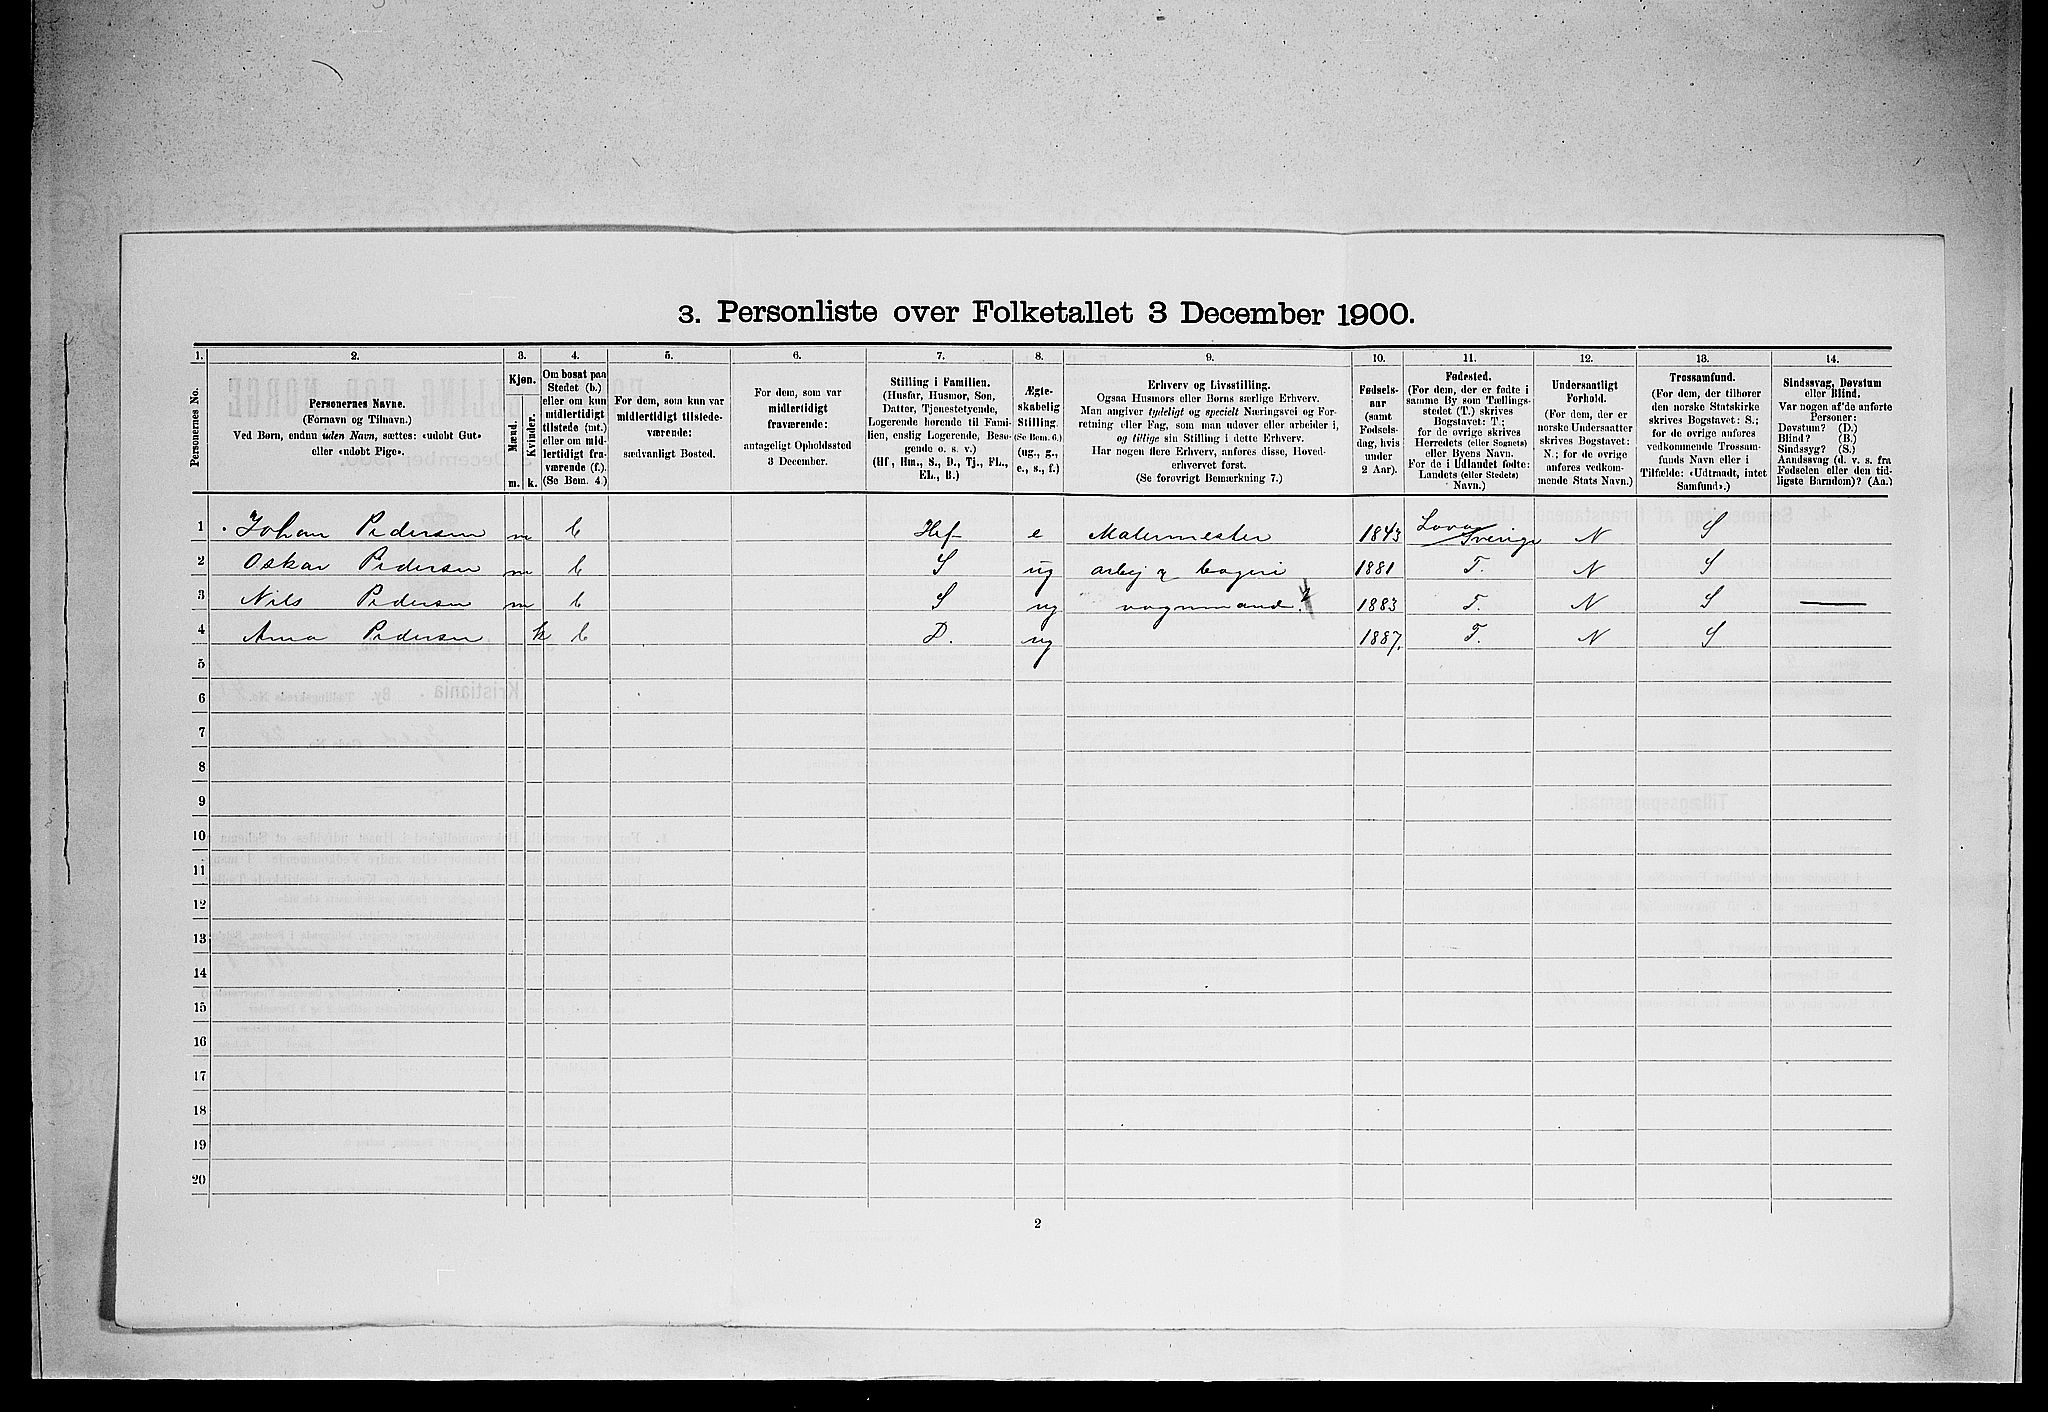 3. Personliste over Folketallet 3 December 1900.
1. 2. 3. 4. 5. 6. 7. 8. 9. 10. 11. 12. 13. 14.
Personernes No.
Personernes Navne.
(Fornavn og Tilnavn.)
Ved Børn, endnu uden Navn, sættes: «udøbt Gut»
eller «udøbt Pige».
Kjøn.
Mænd.
Kvinder.
m. k.
Om bosat paa
Stedet (b.)
eller om kun
midlertidigt
tilstede (mt.)
eller om mid-
lertidigt fra-
værende (f.).
(Se Bem. 4.)
For dem, som kun var
midlertidigt tilstede-
værende:
sædvanligt Bosted.
For dem, som var
midlertidigt
fraværende:
antageligt Opholdssted
3 December.
Stilling i Familien.
(Husfar, Husmor, Søn,
Datter, Tjenestetyende,
Logerende hørende til Fami-
lien, enslig Logerende, Besø-
gende o. s. v.)
(Hf, Hm., S., D., Tj., FL.,
EL., B.)
Ægte-
skabelig
Stilling.
(Se Bem. 6.)
(ug., g.,
e., s., f.)
Erhverv og Livsstilling.
Ogsaa Husmors eller Børns særlige Erhverv.
Man angiver tydeligt og specielt Næringsvei og For-
retning eller Fag, som man udøver eller arbeider i,
og tillige sin Stilling i dette Erhverv.
Har nogen flere Erhverv, anføres disse, Hoved-
erhvervet først.
(Se forøvrigt Bemærkning 7.)
Fødsels-
aar
(samt
Fødsels-
dag, hvis
under
2 Aar).
Fødested.
(For dem, der er fødte i
samme By som Tællings-
stedet (T.) skrives
Bogstavet: T.;
for de øvrige skrives
Herredets (eller Sognets)
eller Byens Navn.
For de i Udlandet fødte:
Landets (eller Stedets)
Navn.)
Undersaatligt
Forhold.
(For dem, der er
norske Undersaatter
skrives Bogstavet:
N.; for de øvrige
anføres vedkom-
mende Stats Navn.)
Trossamfund.
(For dem, der tilhører
den norske Statskirke
skrives Bogstavet: S.;
for de øvrige anføres
vedkommende Trossam-
funds Navn eller i
Tilfælde: «Udtraadt, intet
Samfund».)
Sindssvag, Døvstum
eller Blind.
Var nogen af de anførte
Personer:
Døvstum? (D.)
Blind? (B.)
Sindssyg? (S.)
Aandssvag (d. v. s. fra
Fødselen eller den tid-
ligste Barndom)? (Aa.)
1 Johan Pedersen m b Hf e Malermester 1843 Sverige N S
2 Oskar Pedersen m b S ug arbej bageri 1881 T. N S
3 Nils Pedersen m b S ug vognmand 1883 T. N S —
4 Anna Pedersen k b D. ug 1887. T. N S
5
6
7
8
9
10
11
12
13
14
15
16
17
18
19
20
2